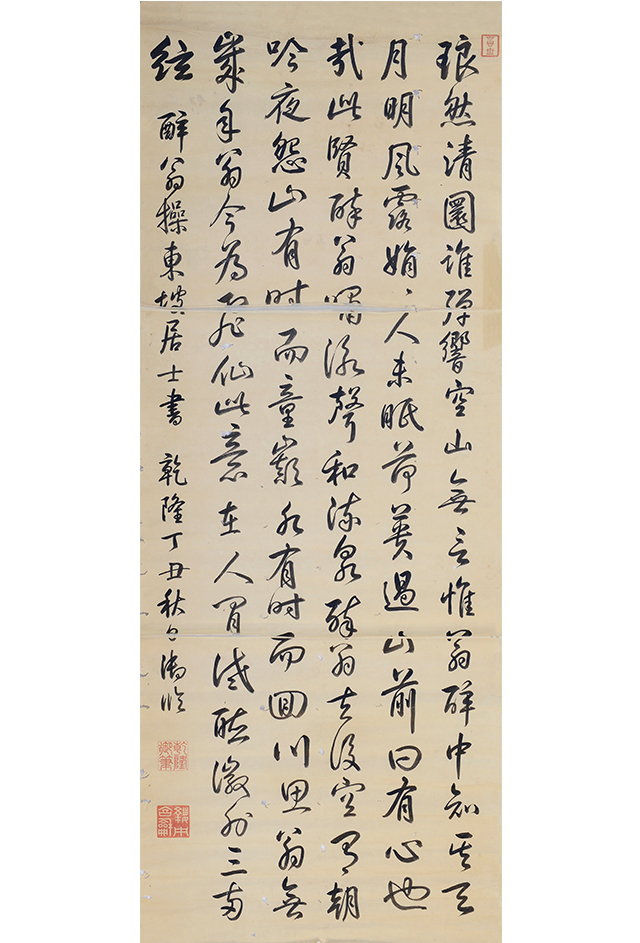 琅然清圜誰彈響空山無言惟翁醉中知其天
月明風露娟〻人未眠荷蕢過山前曰有心也
哉此賢醉翁嘯詠聲和流泉醉翁去後空有朝
吟夜怨山有時而童巔水有時而回川思翁無
歲年翁今為飛仙此意在人間試聽徽外三兩
絃 醉翁操東坡居士書 乾隆丁丑秋御臨
乾隆御筆